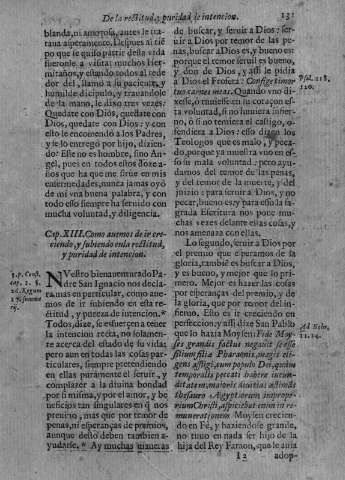 De la rectitud, y puridad de intencion. 131
blanda, ni amorosa, antes le tra-
taua asperamente. Despues al tiē
po que se quiso partir desta vida
fueronle a visitar muchos Her-
mitaños, y estando todos al rede
dor del, llamò a su paciente, y
humilde dicipulo, y trauandole
de la mano, le dixo tres vezes:
Quedate con Dios, quedate con
Dios, quedate con Dios: y con
esto le encomendò a los Padres,
y se lo entregò por hijo, dizien-
do: Esse no es hombre, sino An-
gel, pues en todos estos doze a-
ños que ha que me sirue en mis
enfermedades, nunca jamas oyò
de mi vna buena palabra, y con
todo esso siempre ha seruido con
mucha voluntad, y diligencia.
Cap. XIII. Como auemos de ir cre-
ciendo, y subiendo en la rectitud,
y puridad de intencion.
3. p. Const.
cap. 1. §.
26. Regul.
17. summa
rij.
NVestro bienauenturado Pa-
dre San Ignacio nos decla-
ra mas en particular, como aue-
mos de ir subiendo en esta re-
ctitud, y pureza de intencion.*
Todos, dize, se esfuercen a tener
la intencion recta, no solamen-
te acerca del estado de su vida;
pero aun en todas las cosas par-
ticulares, siempre pretendiendo
en ellas puramente el seruir, y
complazer a la diuina bondad
por si misma, y por el amor, y be
neficios tan singulares en q̃ nos
preuino, mas que por temor de
penas, ni esperanças de premios,
aunque desto deben tambien a-
yudarse.* Ay muchas maneras
de buscar, y seruir a Dios: ser-
uir a Dios por temor de las pe-
nas, buscar a Dios es, y bueno es:
porque el temor seruil es bueno,
y don de Dios, y assi le pidia
a Dios el Profeta: Confige timor
tuo carnes meas. Quando vno di-
Psal. 118.
120.
xesse, ò tuuiesse en su coraçon es-
ta voluntad, si no huuiera infier-
no, ò si no temiera al castigo, o-
fendiera a Dios: esso dizen los
Teologos que es malo, y peca-
do, porque ya muestra vno en es-
so su mala voluntad; pero ayu-
darnos del temor de las penas,
y del temor de la muerte, y del
juizio; para seruir a Dios, y no
pecar, bueno es; y para esso la sa-
grada Escritura nos pone mu-
chas vezes delante estas cosas, y
nos amenaza con ellas.
Lo segundo, seruir a Dios por
el premio que esperamos de la
gloria, tambiē es buscar a Dios,
y es bueno, y mejor que lo pri-
mero. Mejor es hazer las cosas
por esperanças del premio, y de
la gloria, que por temor del in-
fierno. Esto es ir creciendo en
perfeccion, y assi dize San Pablo
que lo hazia Moysen: Fide Moy-
Ad Hebr.
11. 24.
ses grandis factus negauit se esse
filium filiæ Pharaonis, magis eli-
gens affligi, cum populo Dei, quàm
temporalis peccati habere iucun-
ditatem, maiores diuitias æstimãs
thesauro Ægyptiorum improperium
Christi, aspiciebat enim in re-
munerationem. Moysen creciendo
en Fè, y haziendose grande,
tuuo en nada ser hijo de la
hija del Rey Faraon, que le auia
I 2 adop-